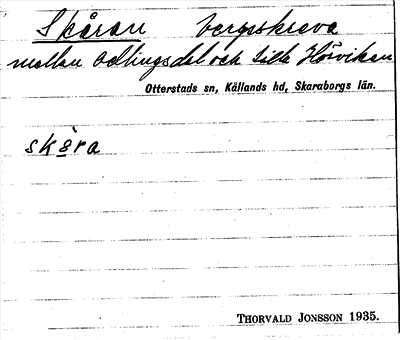 Skåran bergsskreva
mellan Odlingsdal och Lilla Hörviken
Otterstads sn, Kållands hd, Skaraborgs län.
skåra
THORVALD JONSSON 1935.